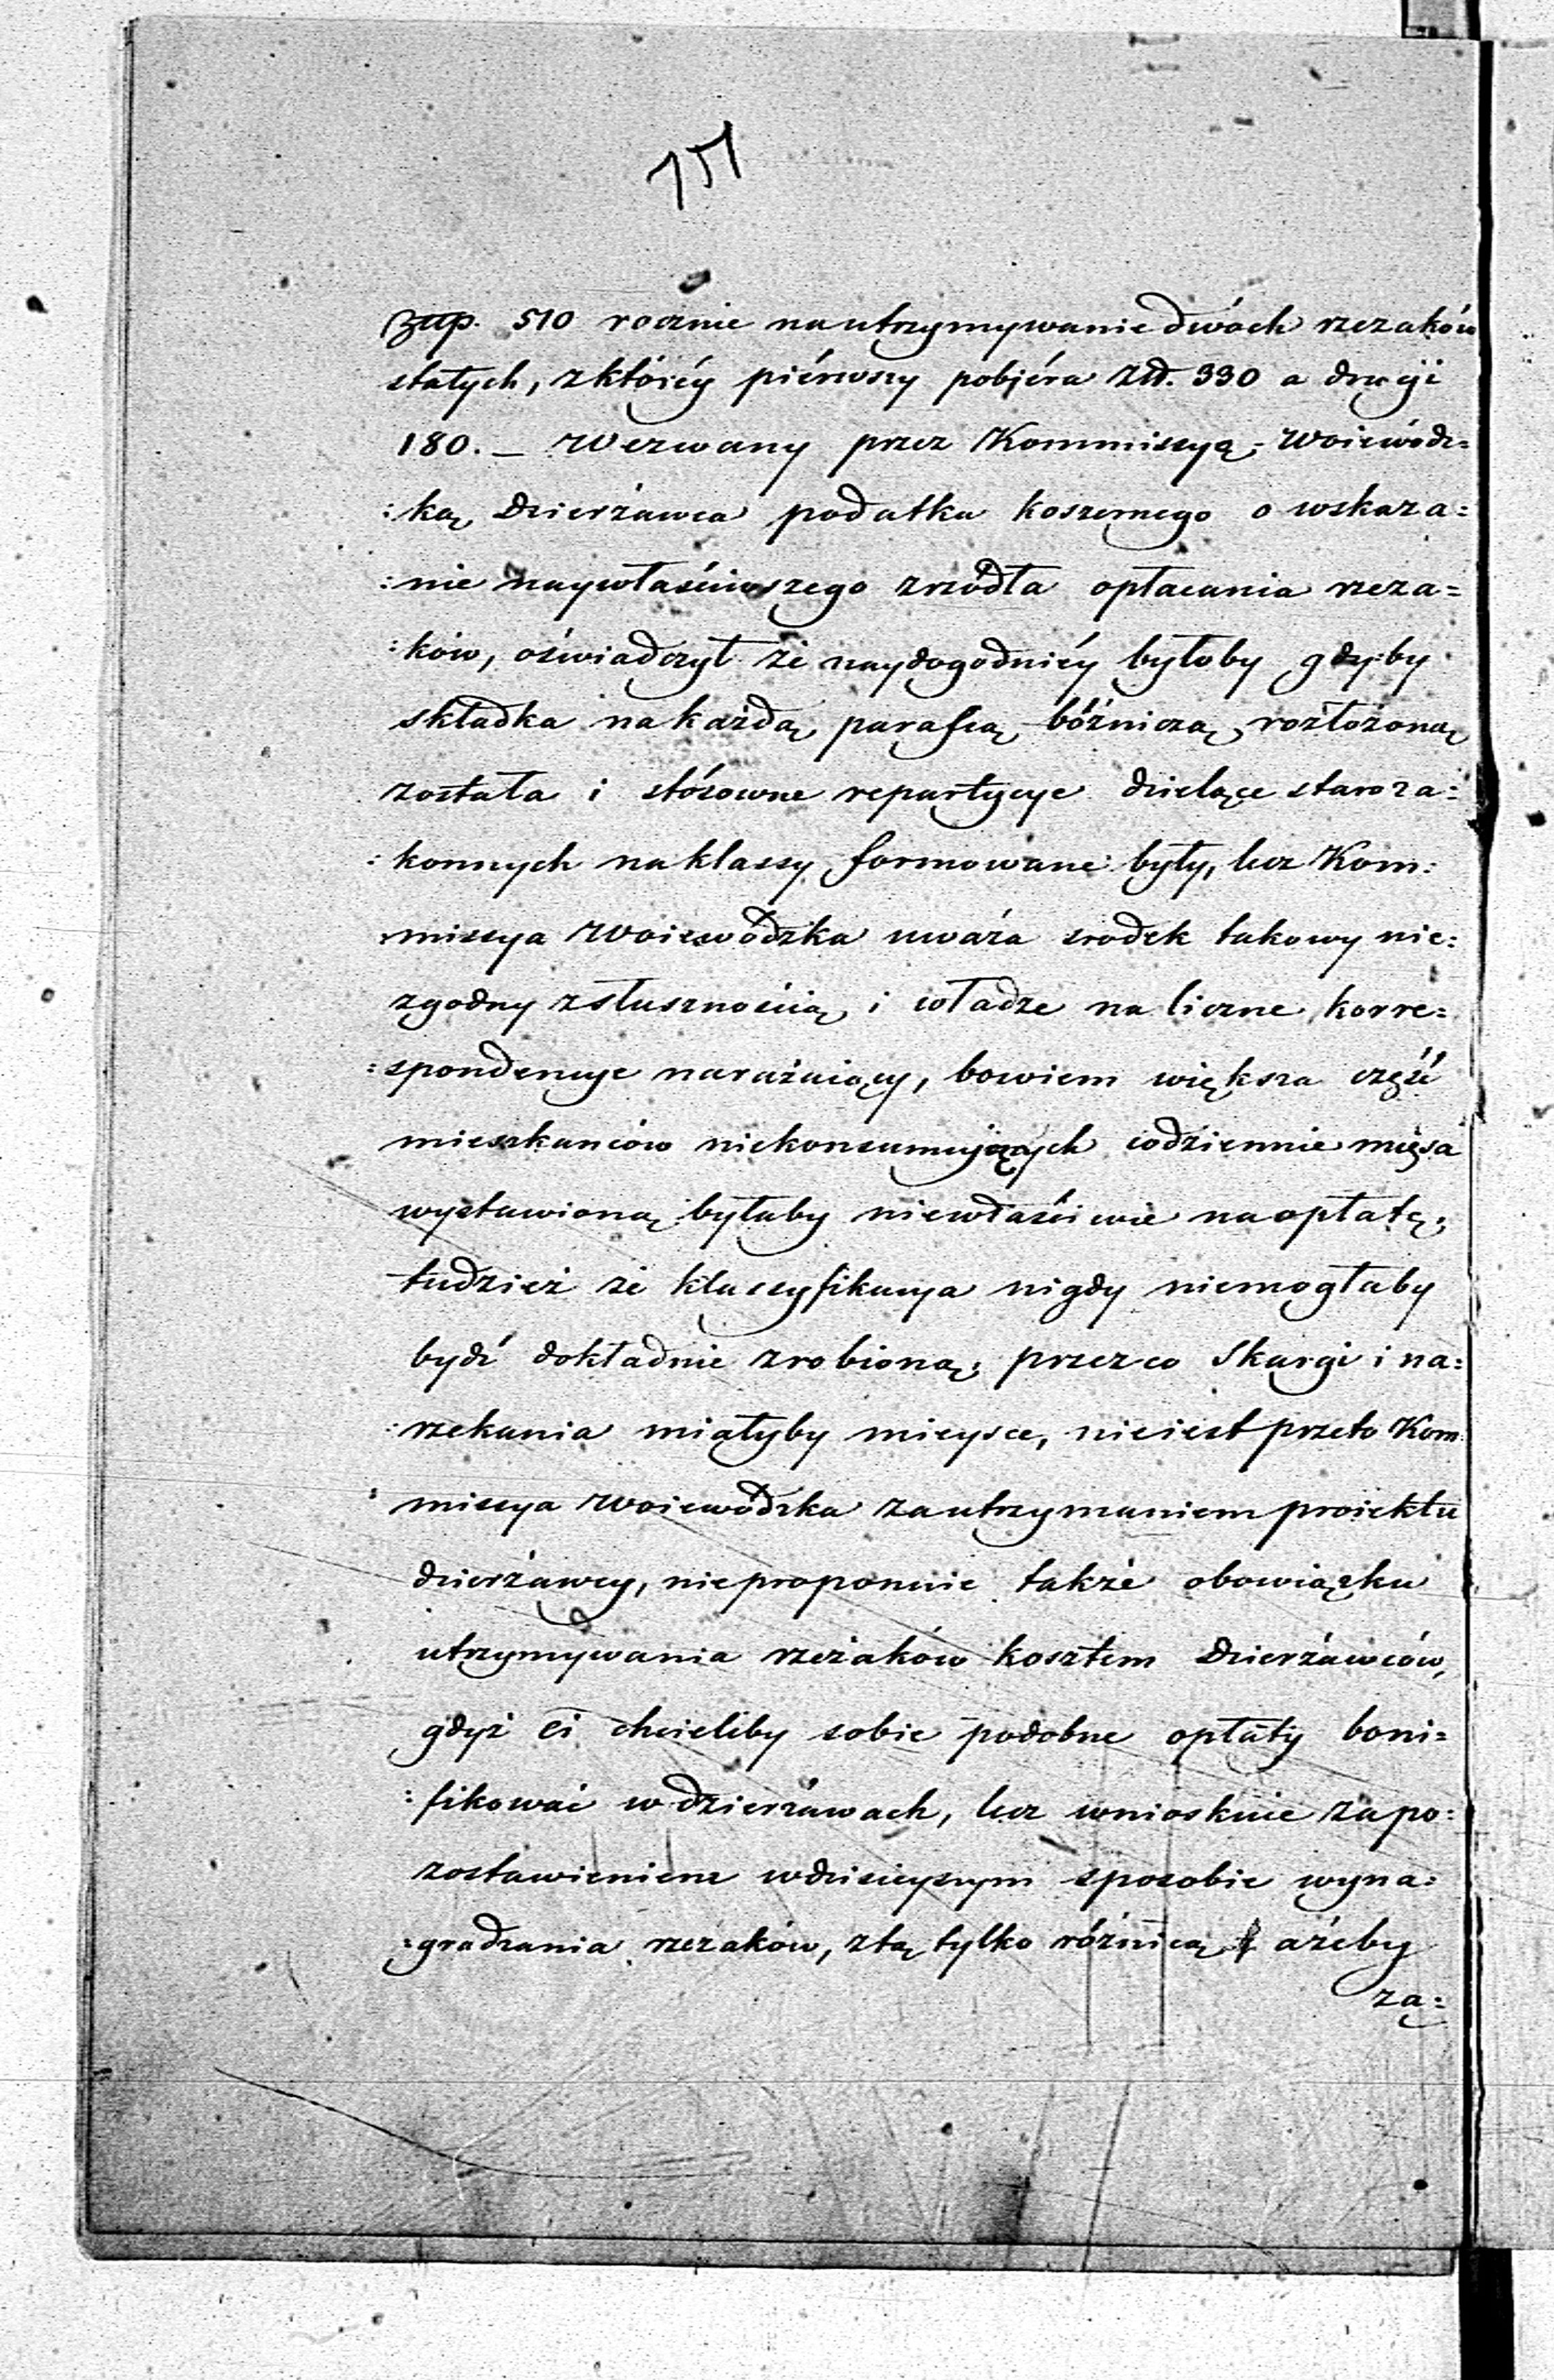 151
Złłp. 510 rocznie na utrzymywanie dwóch rzezaków
stałych, z któréy piérwszy pobiéra Złł. 330 a drugi
180. — Wezwany przez Kommissyą Woiewódz=
:ką Dzierżawca podatku koszernego o wskaza=
:nie naywłaściwszego zrzódła opłacania rzeza=
:ków, oświadczył że naydogodniéy byłoby gdyby
składka na każdą parafią bóżniczą rozłożoną
została i stósowne repartycye dzielące staroza=
:konnych na klassy formowane były, lecz Kom:
missya Woiewódzka uważa srodek takowy nie:
zgodny z słusznością i władze na liczne korre=
:spondencye narażaiący, bowiem większa część
mieszkanców niekonsumujących codziennie mięsa
wystawioną byłaby niewłaściwie na opłatę,
tudzież że klassyfikacya nigdy niemogłaby
bydź dokładnie zrobioną, przezco Skargi i na=
:rzekania miałyby mieysce, nieiest przeto Kom
:missya Woiewódzka za utrzymaniem proiektu
dzierżawcy, nieproponuie także obowiązku
utrzymywania rzezaków kosztem Dzierżawców,
gdyż ci chcieliby sobie podobne opłaty boni=
:fikować w dzierżawach, lecz wnioskuie za po:
zostawieniem w dzisieyszym sposobie wyna:
:gradzania rzezaków, z tą tylko różnicą ażeby
za=